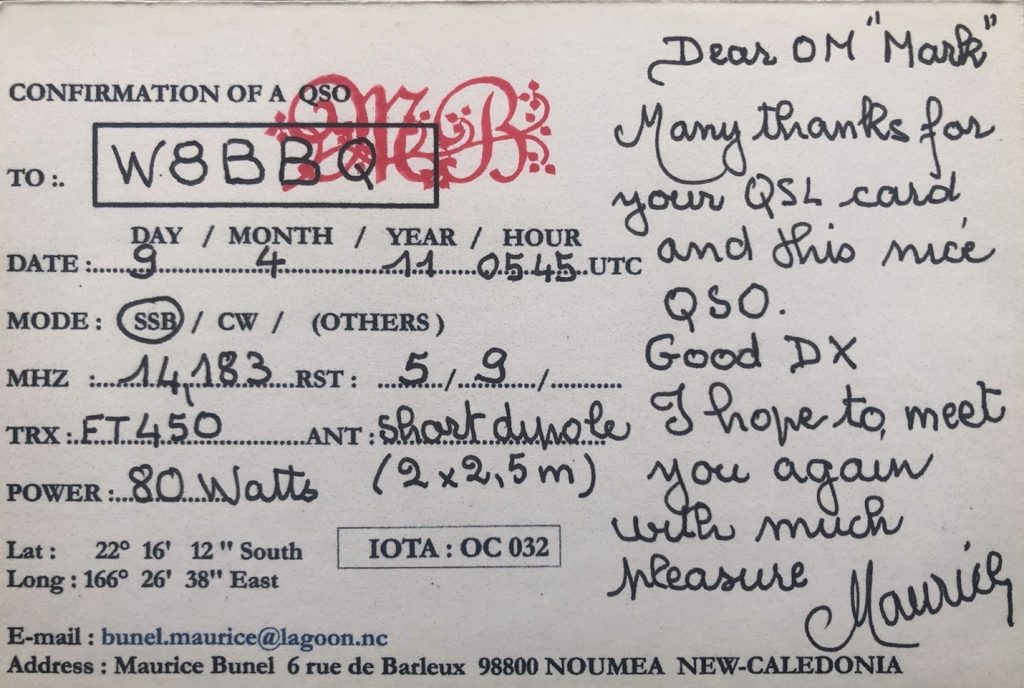 CONFIRMATION OF A QSO
MB
TO :. W8BBQ
DAY / MONTH / YEAR / HOUR
DATE :. 9 4 11 0545 UTC
MODE : SSB / CW / (OTHERS)
MHZ : 14,183 RST : 5 / 9 /
TRX : FT450 ANT : short dipole
(2 x 2,5 m)
POWER : 80 Watts
Lat : 22° 16' 12 " South
Long : 166° 26' 38" East
IOTA : OC 032
E-mail : bunel.maurice@lagoon.nc
Address : Maurice Bunel 6 rue de Barleux 98800 NOUMEA NEW-CALEDONIA
Dear OM "Mark"
Many thanks for
your QSL card
and this nice
QSO.
Good DX
I hope to meet
you again
with much
pleasure
Maurice